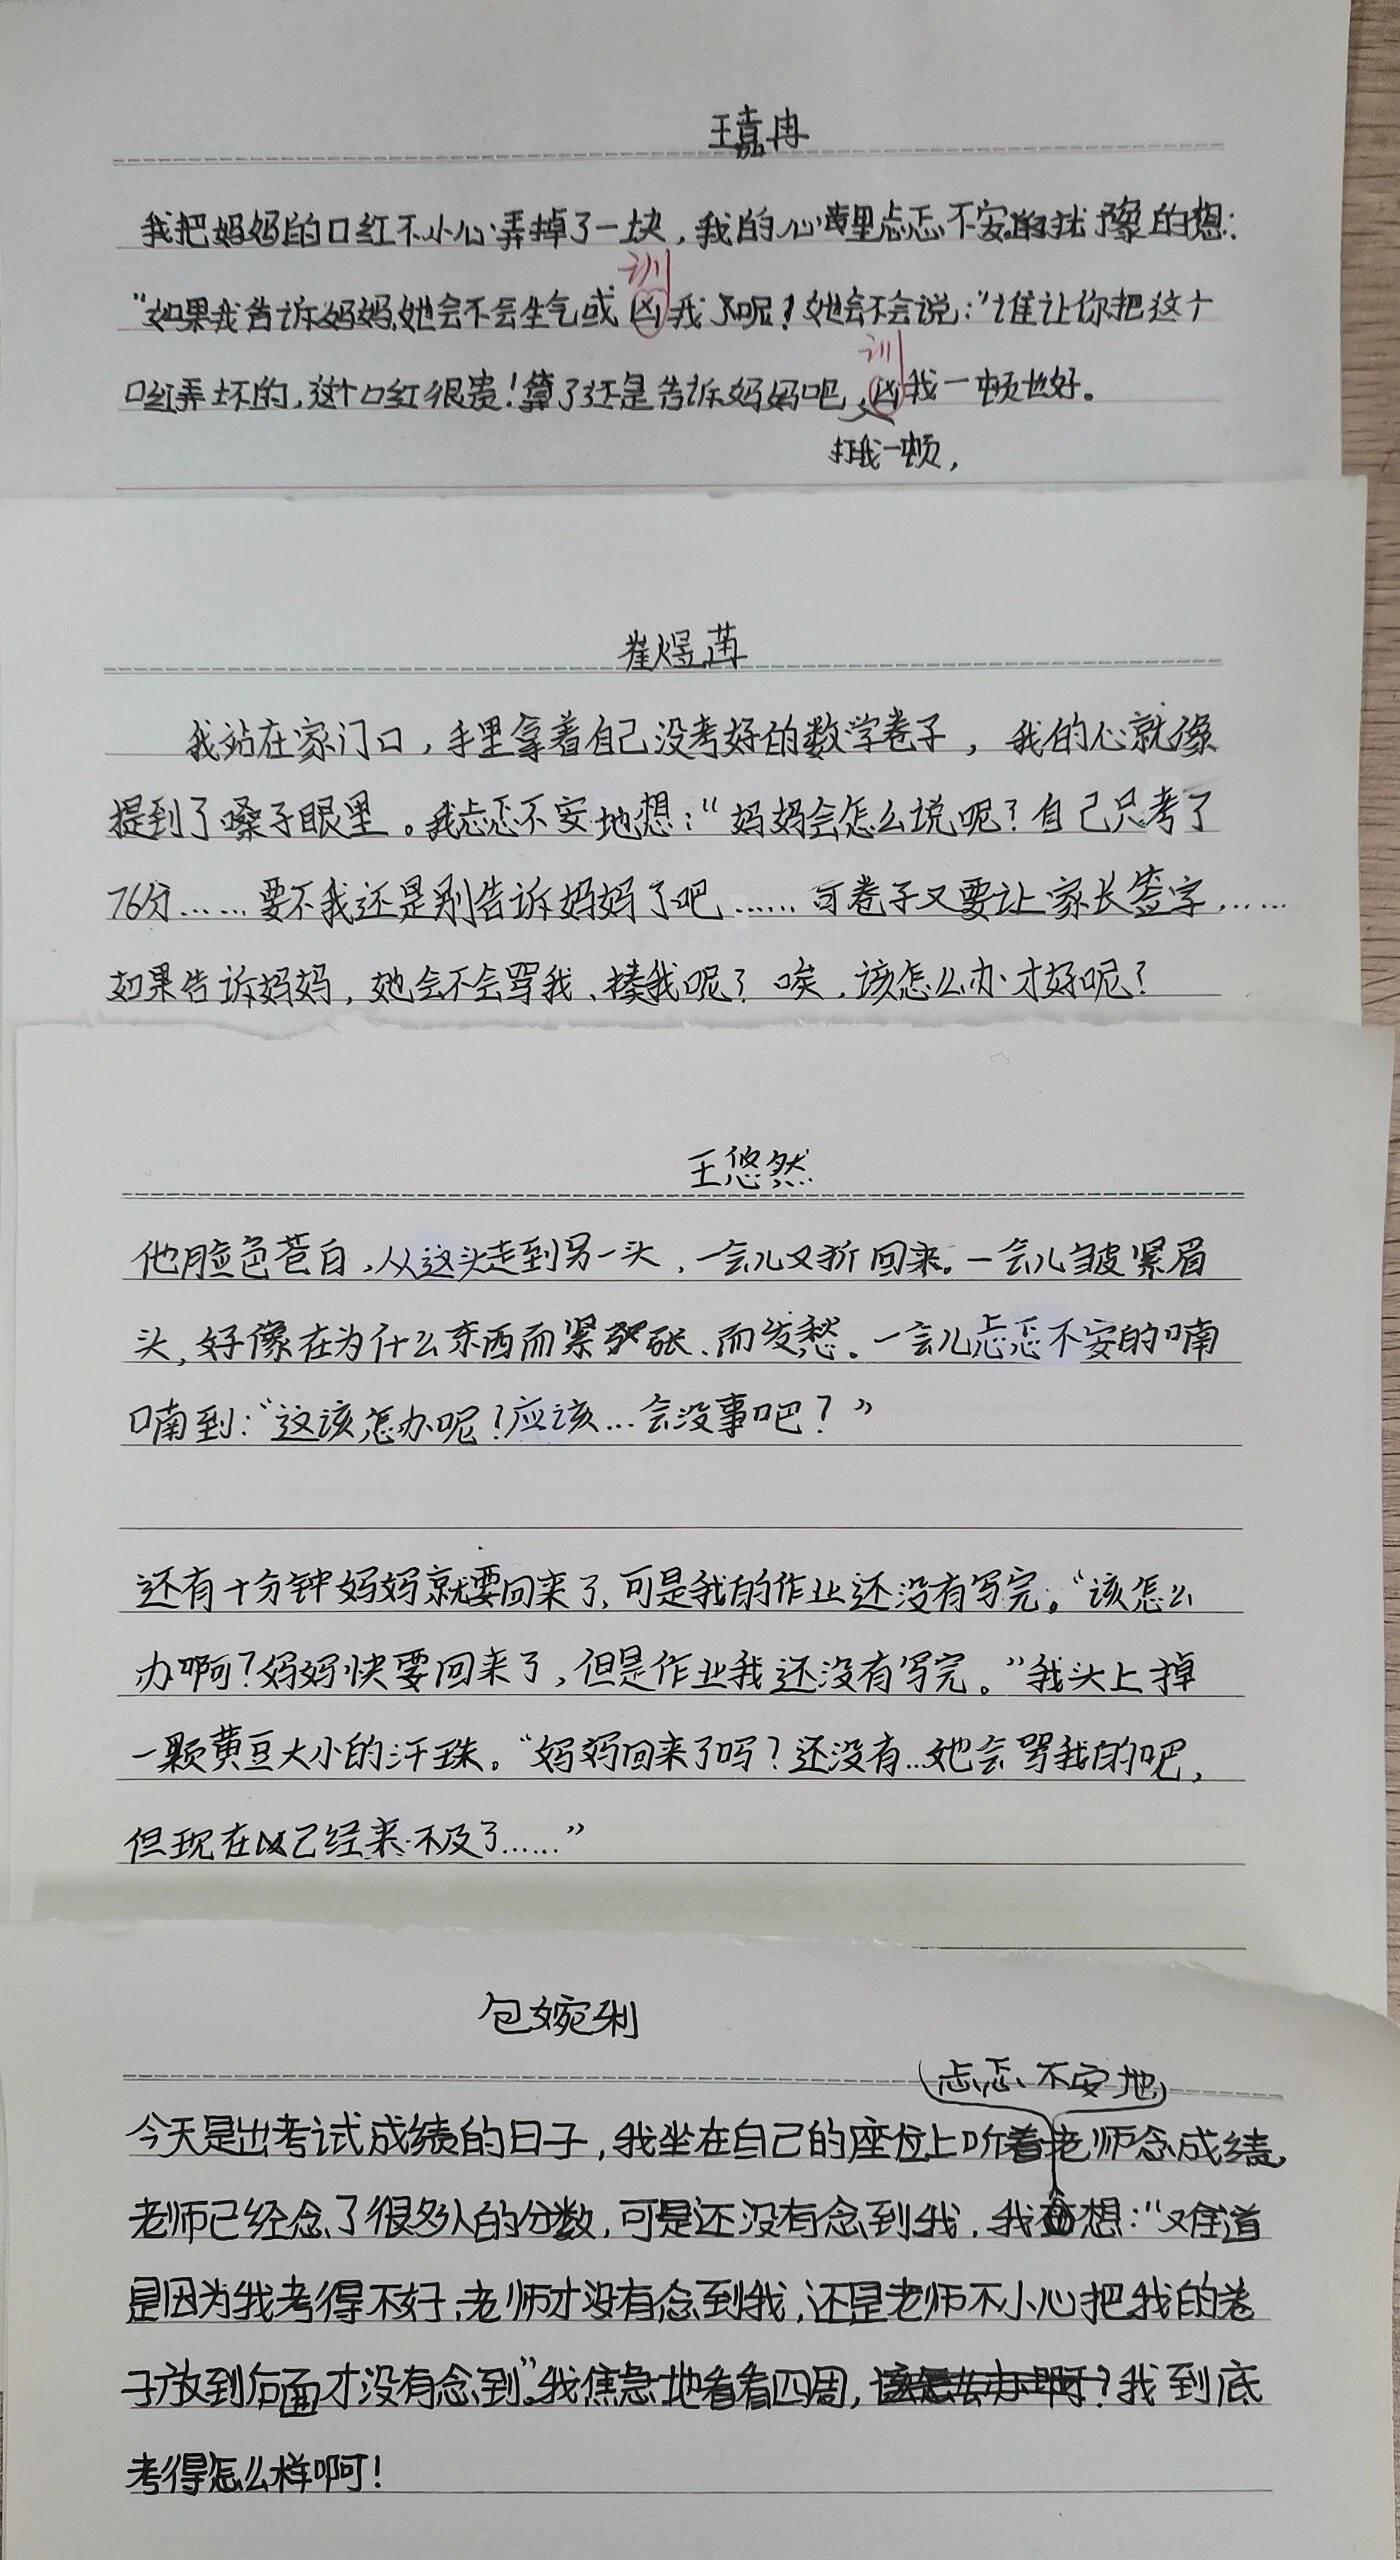 王嘉冉
我把妈妈的口红不小心弄掉了一块，我的心里忐忑不安的犹豫的想：
训
“如果我告诉妈妈，她会不会生气或凶我了呢！她会不会说：“谁让你把这个
训
口红弄坏的，这个口红很贵！算了还是告诉妈妈吧，凶我一顿也好。
打我一顿，
崔煜苒
我站在家门口，手里拿着自己没考好的数学卷子，我的心就像
提到了嗓子眼里。我忐忑不安地想：“妈妈会怎么说呢？自己只考了
76分……要不我还是别告诉妈妈了吧……可卷子又要让家长签字……
如果告诉妈妈，她会不会骂我、揍我呢？唉，该怎么办才好呢？
王悠然
他脸色苍白，从这头走到另一头，一会儿又折回来。一会儿皱紧眉
头，好像在为什么东西而紧张、而发愁。一会儿忐忑不安的喃
喃到：“这该怎办呢？应该…会没事吧？”
还有十分钟妈妈就要回来了，可是我的作业还没有写完。“该怎么
办啊？妈妈快要回来了，但是作业我还没有写完。”我头上掉
一颗黄豆大小的汗珠。“妈妈回来了吗？还没有…她会骂我的吧，
但现在已经来不及了……”
包婉
忐忑不安地
今天是出考试成绩的日子，我坐在自己的座位上听着老师念成绩，
老师已经念了很多人的分数，可是还没有念到我，我想：“难道
是因为我考得不好，老师才没有念到我，还是老师不小心把我的卷
子放到后面才没有念到”。我焦急地看看四周，该怎么办啊？我到底
考得怎么样啊！